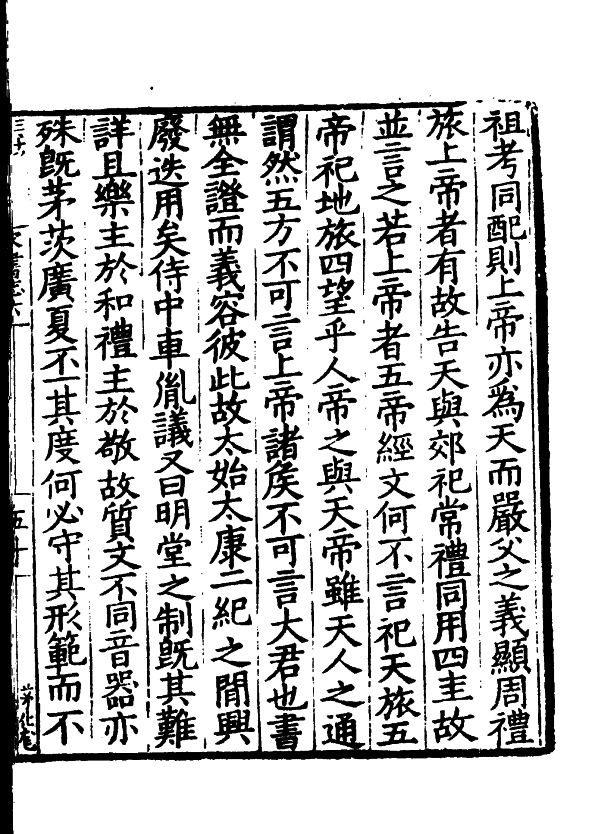 祖考同配則上帝亦為天而嚴父之義顯周禮
旅上帝者有故告天與郊祀常禮同用四圭故
並言之若上帝者五帝經文何不言祀天旅五
帝祀地旅四望乎人帝之與天帝雖天人之通
謂然五方不可言上帝諸矦不可言大君也書
無全證而義容彼此故太始太康二紀之間興
廢迭用矣侍中車胤議又曰明堂之制旣其難
詳且樂主於和禮主於敬故質文不同音器亦
殊旣茅茨廣夏不一其度何必守其形範而不
五十